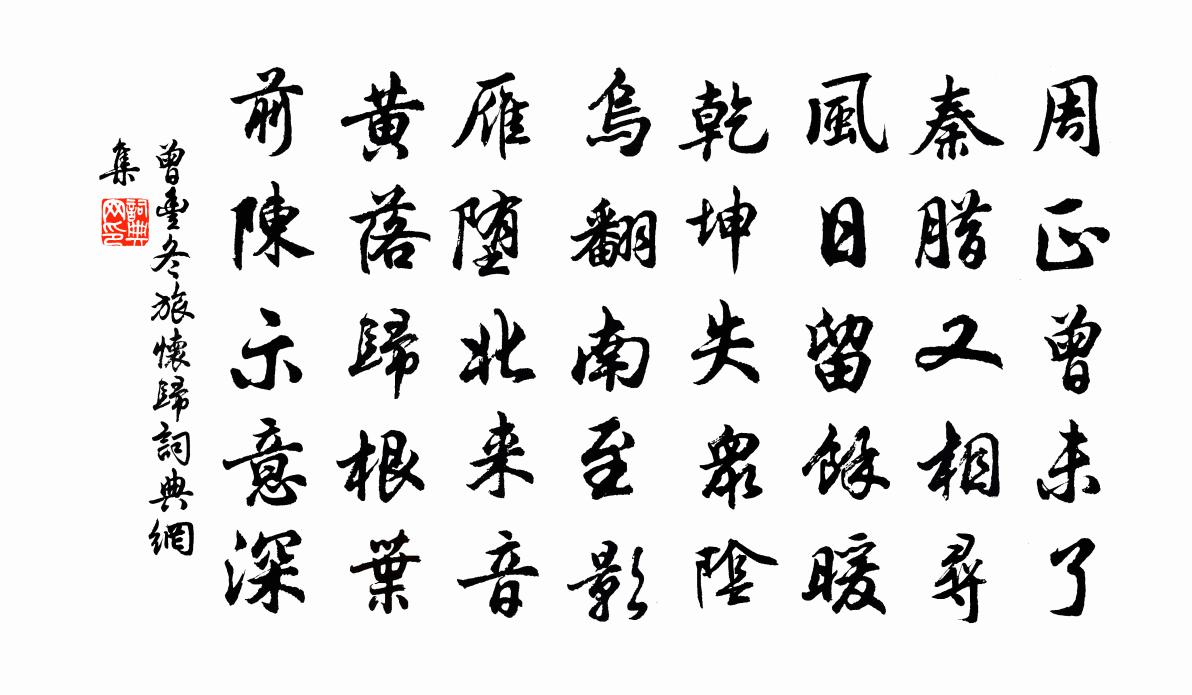 周正曾未了
秦腊又相尋
風日留餘暖
乾坤失眾陰
烏翻南至影
雁堕北来音
黄落歸根葉
前陳示意深
曾豊冬旅懷歸詞典網
集
詞典
网印